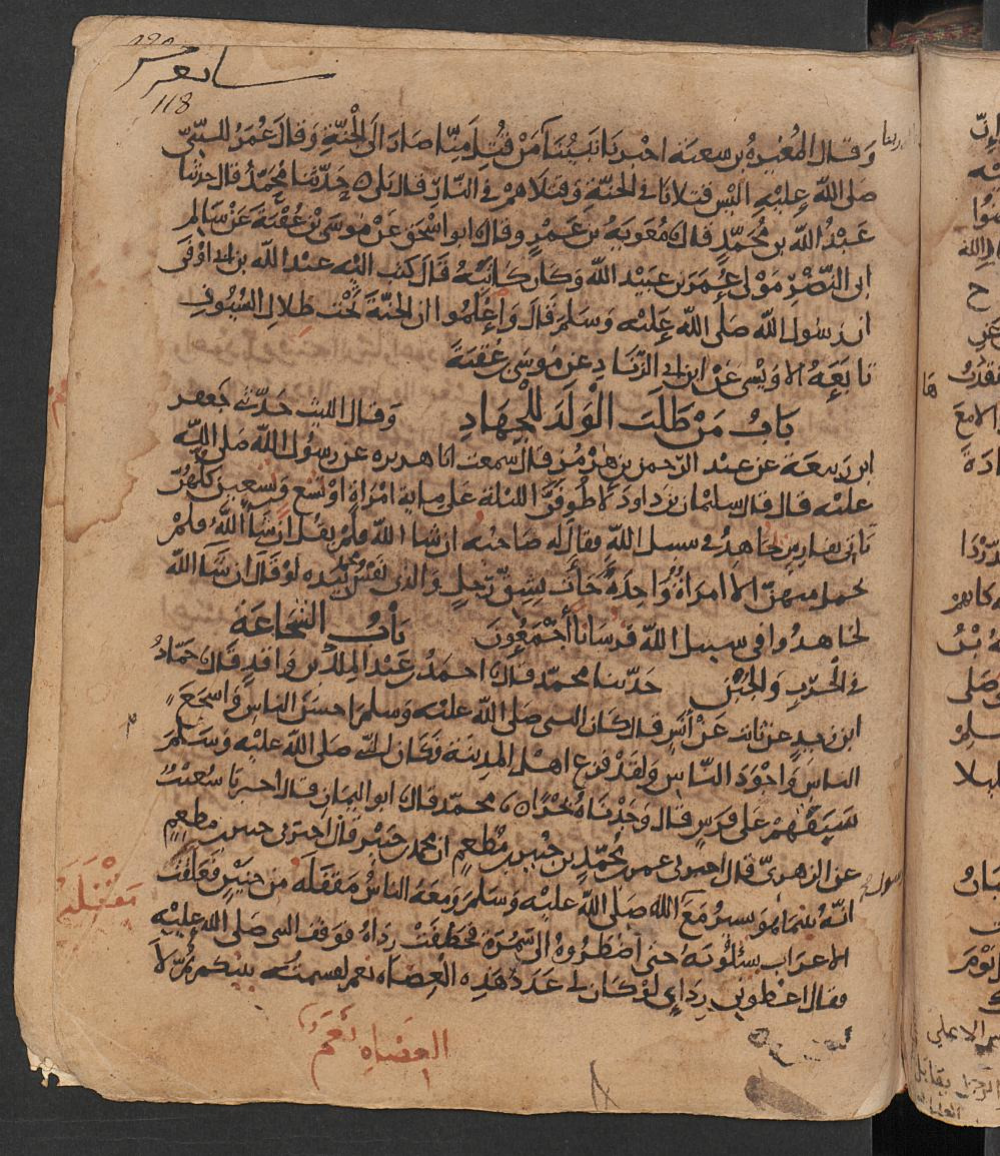 سابع عشر
118
وقال المغيرة بن شعبة اخبرنا نبينا من قتل منا صار الى الجنة وقال عمر للنبي
صلى الله عليه اليس قتلانا في الجنة وقتلاهم في النار قال بلى حدثنا محمد قال حدثنا
عبد الله بن محمد قال معوية بن عمرو قال ابو اسحق عن موسى بن عقبة عن سالم
ابى النضر مولى عمر بن عبيد الله وكان كاتبه قال كتب اليه عبد الله بن ابى اوفى
ان رسول الله صلى الله عليه وسلم قال واعلموا ان الجنة تحت ظلال السيوف
تابعه الاويسى عن ابن ابى الزناد عن موسى بن عقبة
باب من طلب الولد للجهاد وقال الليث حدثنى جعفر
ابن ربيعة عن عبد الرحمن بن هرمز قال سمعت ابا هريره عن رسول الله صلى الله
عليه قال قال سليمان بن داود لاطوفن الليلة على مايه امراة او تسع وتسعين كلهن
تاتى بفارس يجاهد فى سبيل الله فقال له صاحبه ان شا الله فلم يقل ان شا الله فلم
تحمل منهن الا امراة واحدة جات بشق رجل والذى نفس محمد بيده لو قال ان شا الله
لجاهدوا فى سبيل الله فرسانا اجمعون باب الشجاعة
فى الحرب والجبن حدثنا محمد قال احمد بن عبد الملك بن واقد قال حماد
ابن زيد عن ثابت عن انس قال كان النبى صلى الله عليه وسلم احسن الناس واشجع
الناس واجود الناس ولقد فزع اهل المدينة فكان النبى صلى الله عليه وسلم
سبقهم على فرس قال وجدناه بحرا محمد قال ابو اليمان قال اخبرنا شعيب
عن الزهرى قال اخبرنى عمر بن محمد بن جبير بن مطعم ان محمد بن جبير قال اخبرنى جبير بن مطعم
انه بينما هو يسير مع رسول الله صلى الله عليه وسلم ومعه الناس مقفله من حنين فعلقت
الاعراب يسئلونه حتى اضطروه الى سمرة فخطفت رداه فوقف النبى صلى الله عليه
فقال اعطونى رداى لو كان لى عدد هذه العضاه نعم لقسمته بينكم ثم لا
العضاه نعم